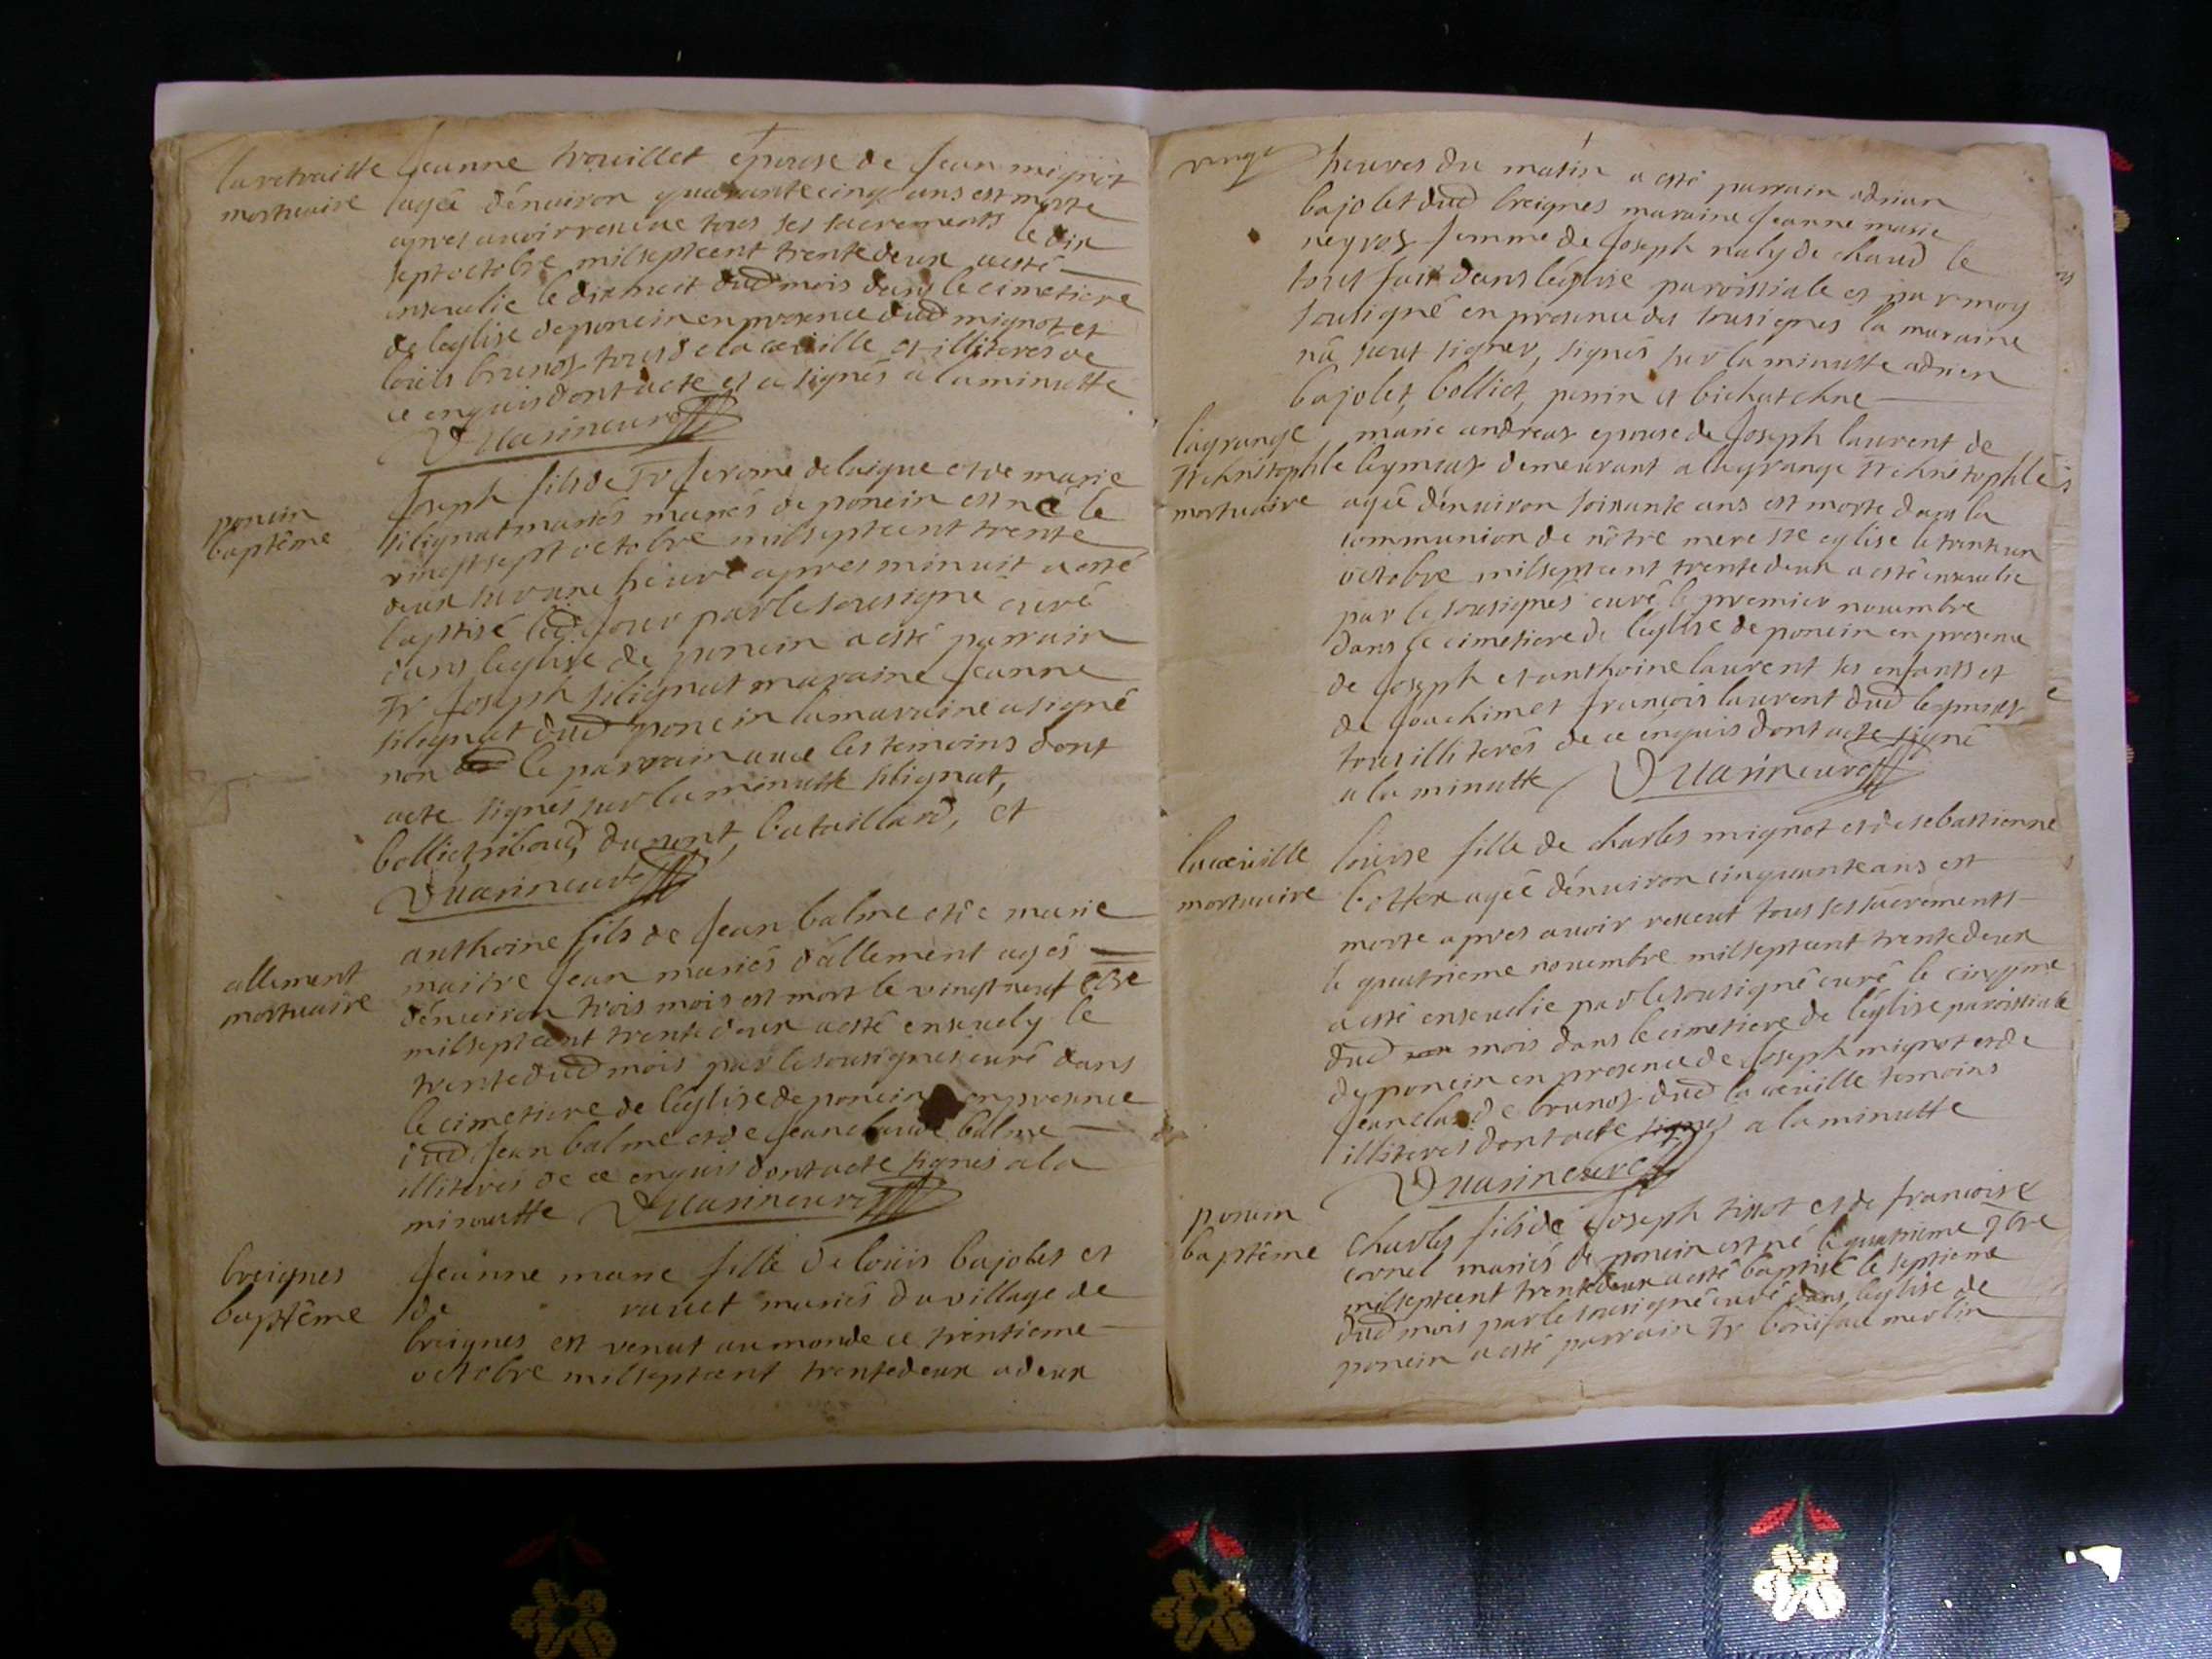 la cotraitte mortuaire
Jeanne trouillet épouse de Jean mignot
agée dénuiron quarante cinq ans est morte
apres auoir receue tous ses sacrements le dix
sept octobre milseptcent trente deux a esté
enseuelie le dix huit dud mois dans le cimetiere
de léglise de poncin en presence dud mignot et
loüis brunos tous de la cœuille et illiterés de
ce enquis dont acte et a signés a la minutte
Duarin curé
poncin baptême
Joseph fils de Sr Jerome delaigue et de marie
silignat mariés mariés de poncin est né le
vingt sept octobre milseptcent trente
deux sur une heure apres minuit a esté
baptisé led Jour par le sousigné curé
dans léglise de poncin a esté parrain
Sr Joseph silignat maraine Jeanne
silignat dud poncin la maraine a signé
non le parrain auec les temoins dont
acte signés sur la minutte silignat,
bolliet, riboud, dumont, bataillard, et
Duarin curé
allement mortuaire
anthoine fils de Jean balme et de marie
maitre Jean mariés dállement agés
dénuiron trois mois est mort le vingt neuf 8bre
milseptcent trente deux a esté enseuely le
trente dud mois par le sousignés curé dans
le cimetiere de léglise de poncin en presence
dud Jean balme et de Jean claude balme
illiterés de ce enquis dont acte signés a la
minutte Duarin curé
breignes baptême
Jeanne marie fille de loüis bajolet et
de ravet mariés du village de
breignes est venut au monde ce trentieme
octobre milseptcent trente deux a deux
heures du matin a esté parrain adrian
bajolet dud breignes maraine Jeanne marie
negros femme de Joseph naly de chaud le
tout fait dans léglise paroissiale et par moy
sousigné en presence des sousignés la maraine
ná sceut signer, signés sur la minutte adrien
bajolet, bolliet, perrin et bichat chne
lagrange St christophle mortuaire
marie andreas epouse de Joseph laurent de
leymiat demeurant a la grange St christophle
agée dénuiron soixante ans est morte dans la
communion de nôtre mere ste eglise le trente un
octobre milseptcent trente deux a esté enseuelie
par le sousignés curé le premier nouembre
dans le cimetiere de léglise de poncin en presence
de Joseph et anthoine laurent ses enfants et
de Joachim et françois laurent dud leymiat
tous illiterés de ce enquis dont acte signé
a la minutte Duarin curé
la cœuille mortuaire
loüise fille de charles mignot et de sebastienne
bottex agée dénuiron cinquante ans est
morte apres auoir receut tous ses sacréments
le quatrieme nouembre milseptcent trente deux
a esté enseuelie par le sousigné curé le cinqᵉme
dud mois dans le cimetiere de léglise paroissiale
de poncin en presence de Joseph mignot et de
Jean claude brunos dud la cœuille temoins
illiteres dont acte signés a la minutte
Duarin curé
poncin baptême
charles fils de Joseph tissot et de francoise
cornel mariés de poncin est né le quatrieme 9bre
milseptcent trente deux a esté baptisé le septieme
dud mois par le sousigné curé dans léglise de
poncin a esté parrain Sr boniface merlin